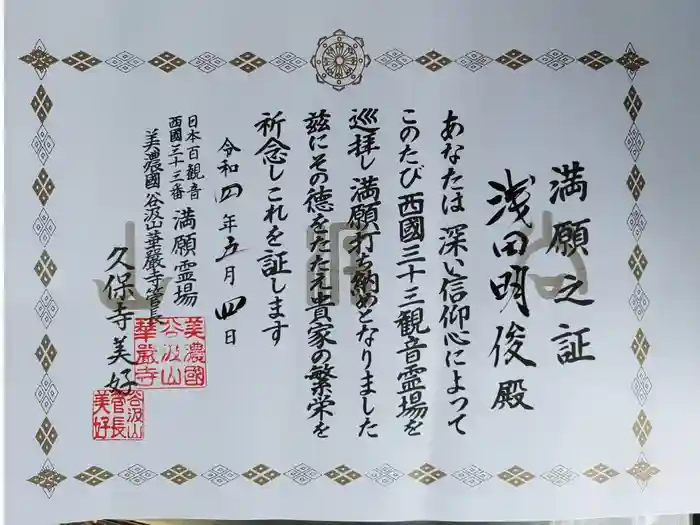 満願之証
浅田明俊殿
あなたは深い信仰心によって
このたび西國三十三観音霊場を
巡拝し満願打ち納めとなりました
茲にその徳をたたえ貴家の繁栄を
祈念しこれを証します
令和四年五月四日
日本百観音
西國三十三番
満願霊場
美濃國谷汲山華厳寺管長
久保寺美好
美濃國
谷汲山
華厳寺
谷汲山
管長
美好